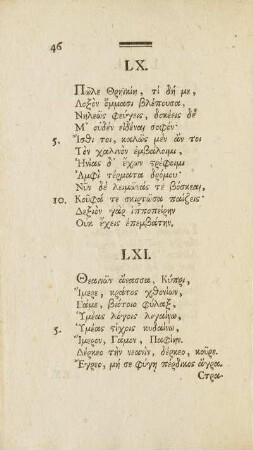 46
LX.
Πῶλε Θρηϊκίη, τί δή με,
Λοξὸν ὄμμασι βλέπουσα,
Νηλεῶς φεύγεις, δοκέεις δέ
Μ' οὐδὲν εἰδέναι σοφόν·
5. Ἴσθι τοι, καλῶς μὲν ἄν τοι
Τὸν χαλινὸν ἐμβάλοιμι,
Ἡνίας δ' ἔχων στρέφοιμι
Ἀμφὶ τέρματα δρόμου·
Νῦν δὲ λειμῶνάς τε βόσκεαι,
10. Κοῦφά τε σκιρτῶσα παίζεις·
Δεξιὸν γὰρ ἱπποπείρην
Οὐκ ἔχεις ἐπεμβάτην.
LXI.
Θεαινῶν ἄνασσα, Κύπρι,
Ἵμερε, κράτος χθονίων,
Γάμε, βιότοιο φύλαξ,
Ὑμέας λόγοις λιγαίνω,
5. Ὑμέας στίχοις κυδαίνω,
Ἵμερον, Γάμον, Παφίην.
Δέρκεο τὴν νεᾶνιν, δέρκεο, κοῦρε.
Ἔγρεο, μή σε φύγῃ πέρδικος ἄγρα.
Στρα-